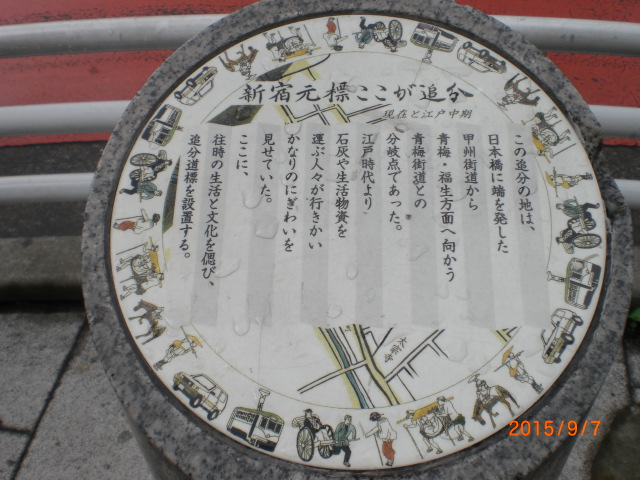 新宿元標ここが追分
現在と江戸中期
この追分の地は、
日本橋に端を発した
甲州街道から
青梅・福生方面へ向かう
青梅街道との
分岐点であった。
江戸時代より
石灰や生活物資を
運ぶ人々が行きかい
かなりのにぎわいを
見せていた。
ここに、
往時の生活と文化を偲び、
追分道標を設置する。
太宗寺
2015/9/7